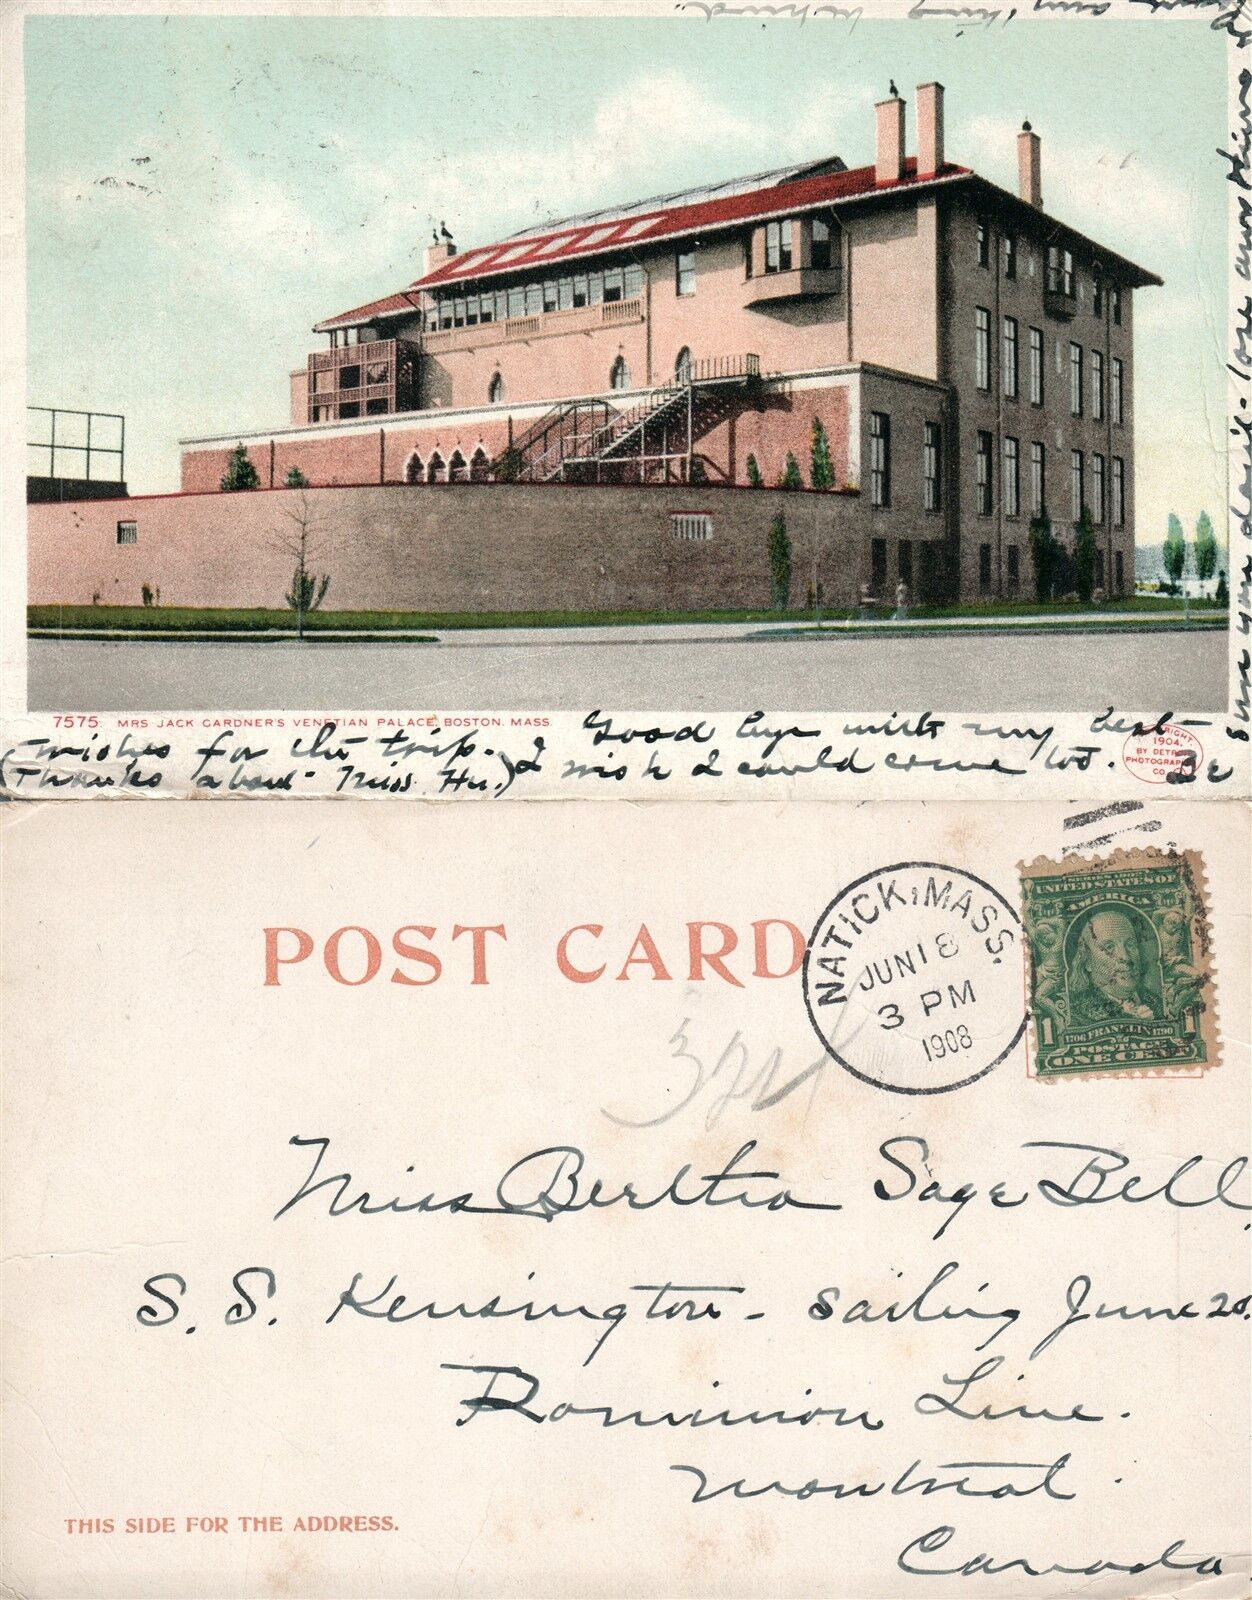 7575. MRS JACK GARDNER'S VENETIAN PALACE, BOSTON, MASS.
Good bye with my best
wishes for the trip. I wish I could come too. Be
(Thanks about Miss Hu.)
sure you don't lose anything &
any thing behind.
COPYRIGHT, 1904, BY DETROIT PHOTOGRAPHIC CO.
POST CARD
NATICK, MASS.
JUN 18
3 PM
1908
SERIES 1902
UNITED STATES OF
AMERICA
1 1706 FRANKLIN 1790 1
POSTAGE
ONE CENT
Miss Bertha Sage Bell
S. S. Kensington - sailing June 20.
Dominion Line.
Montreal.
Canada.
THIS SIDE FOR THE ADDRESS.